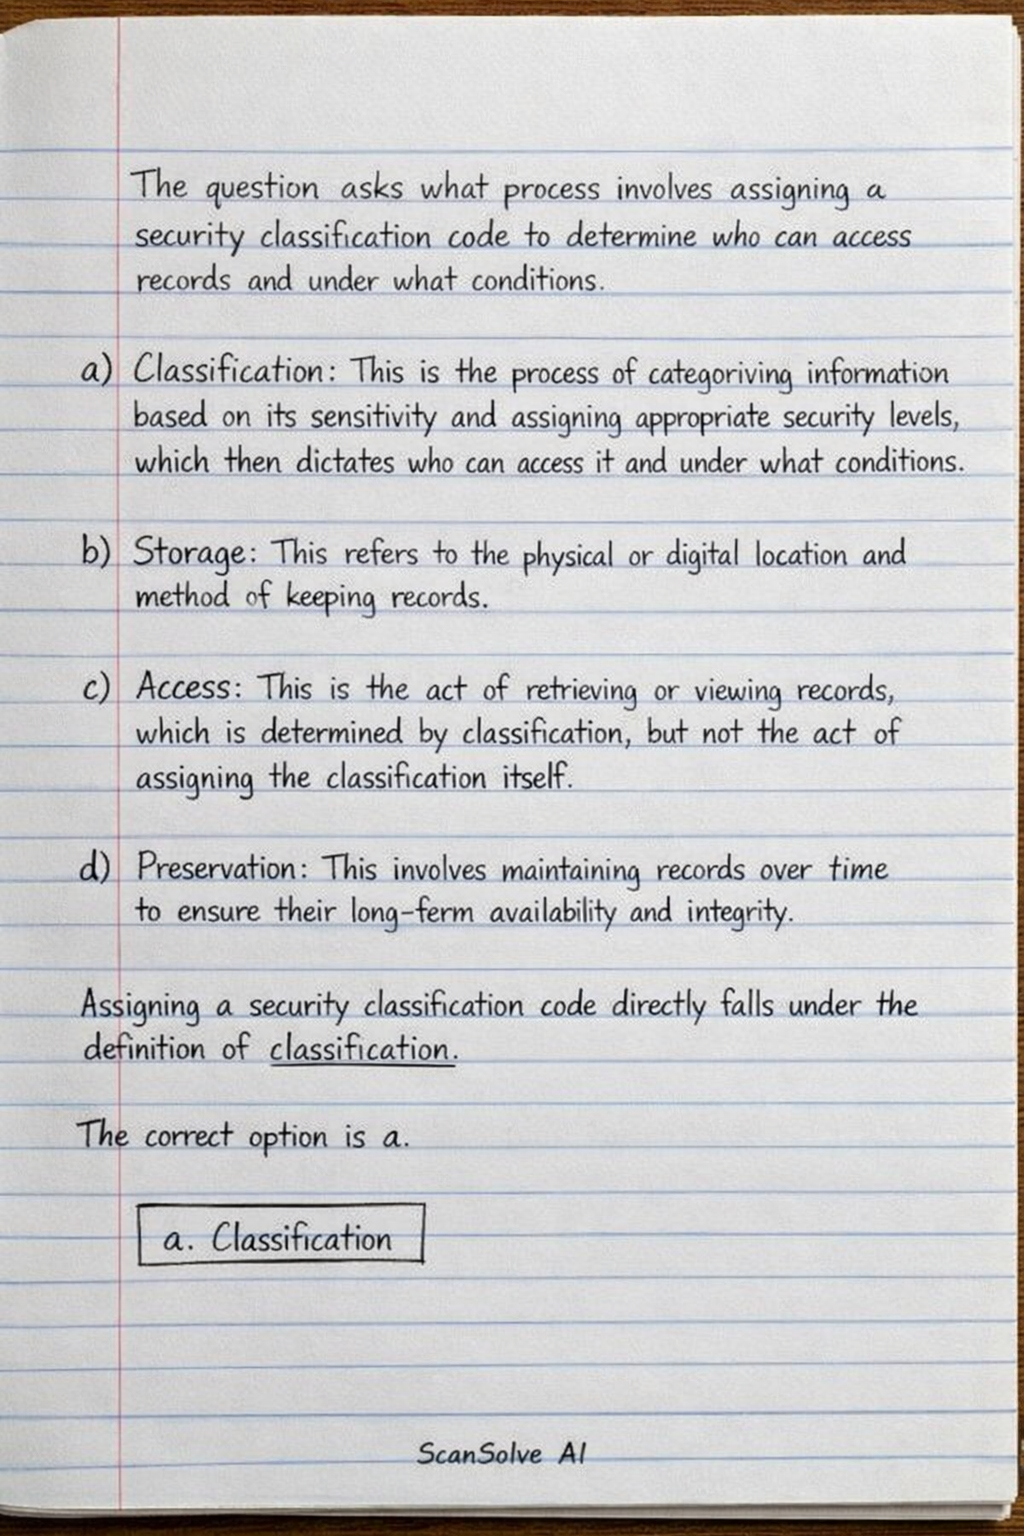 The question asks what process involves assigning a
security classification code to determine who can access
records and under what conditions.
a) Classification: This is the process of categoriving information
based on its sensitivity and assigning appropriate security levels,
which then dictates who can access it and under what conditions.
b) Storage: This refers to the physical or digital location and
method of keeping records.
c) Access: This is the act of retrieving or viewing records,
which is determined by classification, but not the act of
assigning the classification itself.
d) Preservation: This involves maintaining records over time
to ensure their long-ferm availability and integrity.
Assigning a security classification code directly falls under the
definition of classification.
The correct option is a.
a. Classification
ScanSolve AI